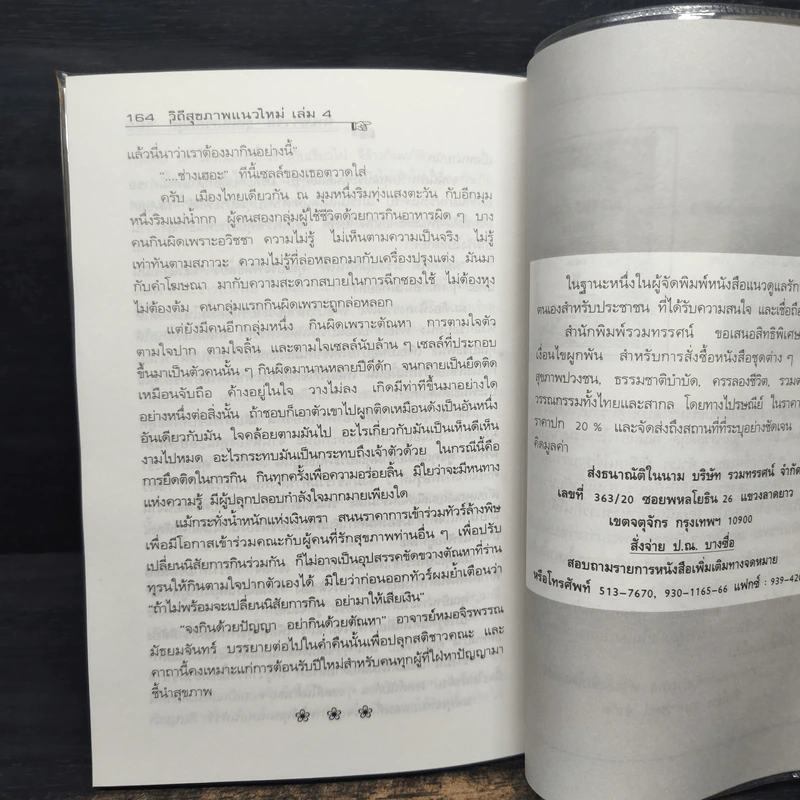 164 วิถีสุขภาพแนวใหม่ เล่ม 4
แล้วนี่นาว่าเราต้องมากินอย่างนี้"
"....ช่างเฮอะ" ทีนี้เซลล์ของเธอตวาดใส่
ครับ เมืองไทยเดียวกัน ณ มุมหนึ่งริมทุ่งแสงตะวัน กับอีกมุม
หนึ่งริมแม่น้ำกก ผู้คนสองกลุ่มผู้ใช้ชีวิตด้วยการกินอาหารผิด ๆ บาง
คนกินผิดเพราะอวิชชา ความไม่รู้ ไม่เห็นตามความเป็นจริง ไม่รู้
เท่าทันตามสภาวะ ความไม่รู้ที่ล่อหลอกมากับเครื่องปรุงแต่ง มันมา
กับคำโฆษณา มากับความสะดวกสบายในการฉีกซองใช้ ไม่ต้องหุง
ไม่ต้องต้ม คนกลุ่มแรกกินผิดเพราะถูกล่อหลอก
แต่ยังมีคนอีกกลุ่มหนึ่ง กินผิดเพราะตัณหา การตามใจตัว
ตามใจปาก ตามใจลิ้น และตามใจเซลล์นับล้าน ๆ เซลล์ที่ประกอบ
ขึ้นมาเป็นตัวคนนั้น ๆ กินผิดมานานหลายปีดีดัก จนกลายเป็นยึดติด
เหมือนจับถือ ค้างอยู่ในใจ วางไม่ลง เกิดมีท่าทีขึ้นมาอย่างใด
อย่างหนึ่งต่อสิ่งนั้น ถ้าชอบก็เอาตัวเข้าไปผูกติดเหมือนดังเป็นอันหนึ่ง
อันเดียวกับมัน ใจคล้อยตามมันไป อะไรเกี่ยวกับมันเป็นเห็นดีเห็น
งามไปหมด อะไรกระทบมันเป็นกระทบถึงเจ้าตัวด้วย ในกรณีนี้คือ
การยึดติดในการกิน กินทุกครั้งเพื่อความอร่อยลิ้น มิใยว่าจะมีหนทาง
แห่งความรู้ มีผู้ปลุกปลอบกำลังใจมากมายเพียงใด
แม้กระทั่งน้ำหนักแห่งเงินตรา สนนราคาการเข้าร่วมทัวร์ล้างพิษ
เพื่อมีโอกาสเข้าร่วมคณะกับผู้คนที่รักสุขภาพท่านอื่น ๆ เพื่อปรับ
เปลี่ยนนิสัยการกินร่วมกัน ก็ไม่อาจเป็นอุปสรรคขัดขวางตัณหาที่ร่าน
ทุรนให้กินตามใจปากตัวเองได้ มิใยว่าก่อนออกทัวร์ผมย้ำเตือนว่า
"ถ้าไม่พร้อมจะเปลี่ยนนิสัยการกิน อย่ามาให้เสียเงิน"
"จงกินด้วยปัญญา อย่ากินด้วยตัณหา" อาจารย์หมอจิรพรรณ
มัธยมจันทร์ บรรยายต่อไปในค่ำคืนนั้นเพื่อปลุกสติชาวคณะ และ
คาถานี้คงเหมาะแก่การต้อนรับปีใหม่สำหรับคนทุกผู้ที่ใฝ่หาปัญญามา
ชี้นำสุขภาพ
ในฐานะหนึ่งในผู้จัดพิมพ์หนังสือแนวดูแลรัก
ตนเองสำหรับประชาชน ที่ได้รับความสนใจ และเชื่อถือ
สำนักพิมพ์รวมทรรศน์ ขอเสนอสิทธิพิเศษ
เงื่อนไขผูกพัน สำหรับการสั่งซื้อหนังสือชุดต่าง ๆ
สุขภาพปวงชน, ธรรมชาติบำบัด, ครรลองชีวิต, รวมต
วรรณกรรมทั้งไทยและสากล โดยทางไปรษณีย์ ในราคา
ราคาปก 20 % และจัดส่งถึงสถานที่ที่ระบุอย่างชัดเจน
คิดมูลค่า
ส่งธนาณัติในนาม บริษัท รวมทรรศน์ จำกัด
เลขที่ 363/20 ซอยพหลโยธิน 26 แขวงลาดยาว
เขตจตุจักร กรุงเทพฯ 10900
สั่งจ่าย ป.ณ. บางซื่อ
สอบถามรายการหนังสือเพิ่มเติมทางจดหมาย
หรือโทรศัพท์ 513-7670, 930-1165-66 แฟกซ์ : 939-420